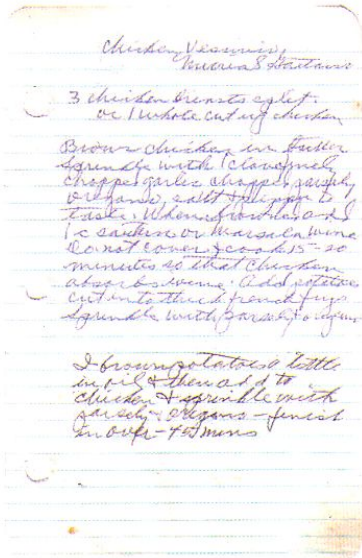 Chicken Vesuvio
3 chicken breasts split
or 1 whole cut up chicken
Brown chicken in
Sprinkle with 1 clove finely
chopped garlic chopped parsely,
oregano, salt & pepper to
taste. When browned add
1 c sautern or Marsala wine
Do not cover & cook 15-20
minutes so that chicken
absorbs wine. Add potatoes
cut into thick french frys
Sprinkle with parsely & oregano
I brown potatoes a little
in oil & then add to
chicken & sprinkle with
parsely & oregano - finish
in oven - 45 mins